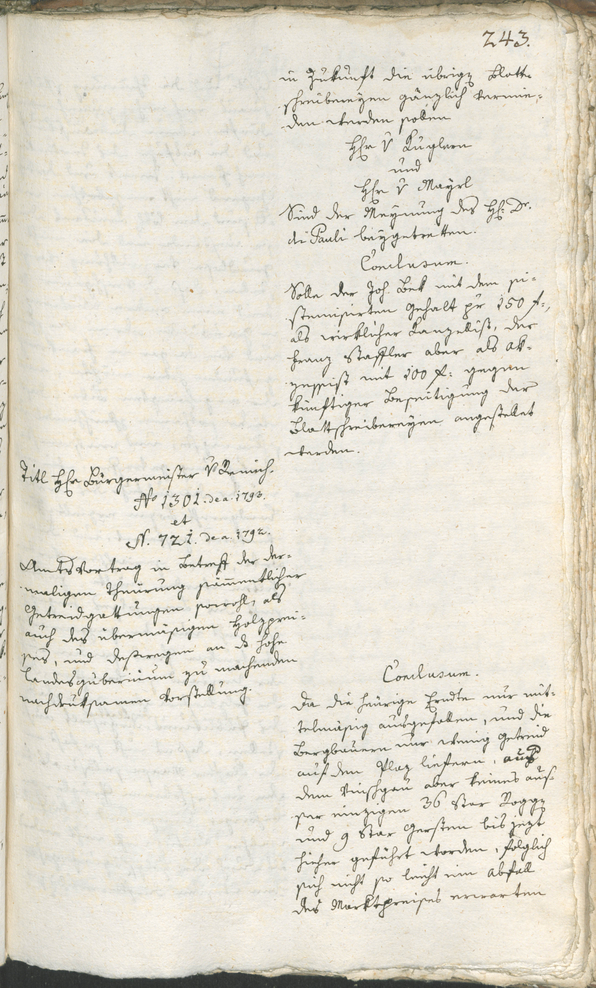 243.
in Zukunft die übrige Blatt-
schreibereyen gänzlich vermie-
den werden sollen
Hhr v Kuglern
und
Hhr v Mayrl
Sind der Meynung des Hh: Dr.
di Pauli beygetretten.
Conclusum.
Solle der Joh. Bek mit dem si-
stemisirten Gehalt pr 150 f:,
als wirklicher Kanzelist, der
Franz Staffler aber als Ak-
zessist mit 100 f: gegen
künftiger Beseitigung der
Blattschreibereyen angestellet
werden.
Titl Hhr Burgermeister v Remich.
No 1301. de a. 1793.
et
N. 721. de a. 1792.
Amtsvortrag in Betreff der der-
maligen Theurung sämentlicher
Getreidgattungen sowohl, als
auch des übermäsigen Holzprei-
ses, und destwegen an d hohe
Landesgubernium zu machenden
nachdruksamen Vorstellung.
Conclusum.
Da die heurige Erndte nur mit-
telmäsig ausgefallen, und die
Bergbauern nur wenig Getreid
auf den Plaz liefern, aus
dem Vinschgau aber keines aus-
ser einzigen 36 Star Rogge
und 9 Star Gersten bis jezt
hieher geführt worden, folglich
sich nicht so leicht ein Abfall
des Marktpreises erwarten